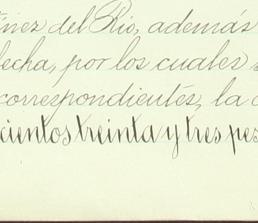 ñez del Rio, además
fecha, por los cuales
correspondientes, la
cientos treinta y tres pes